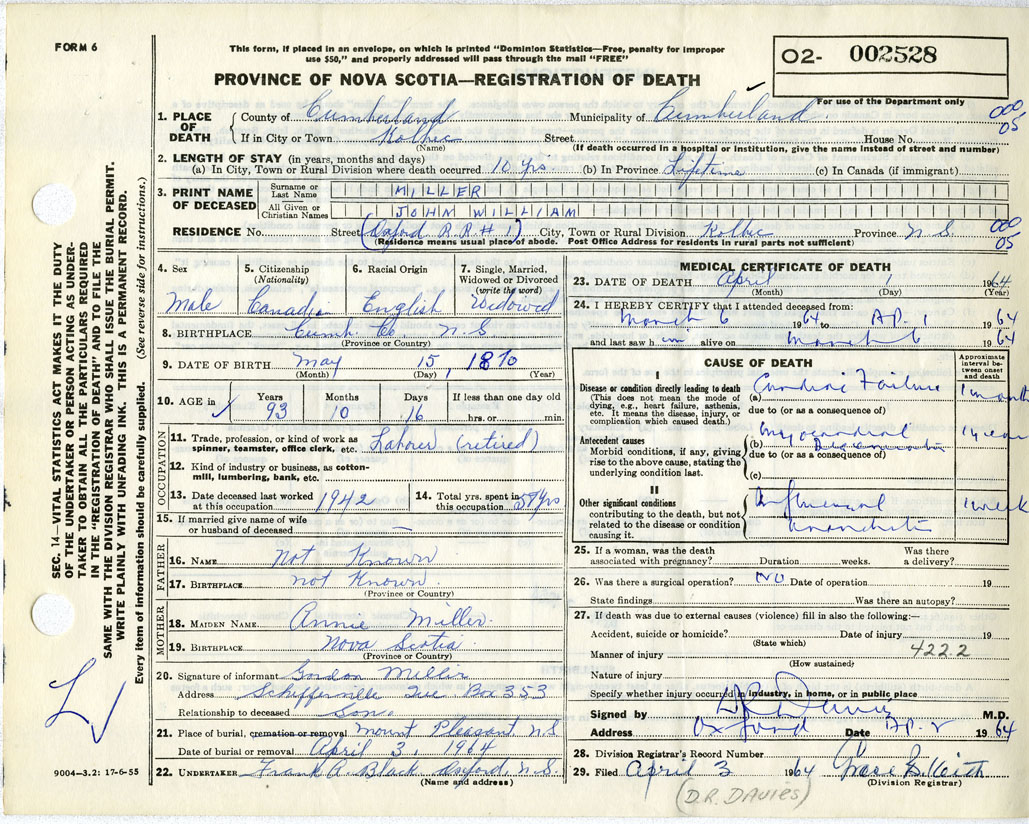 FORM 6
This form, if placed in an envelope, on which is printed "Dominion Statistics—Free, penalty for improper
use $50," and properly addressed will pass through the mail "FREE"
PROVINCE OF NOVA SCOTIA—REGISTRATION OF DEATH
O2- 002528
For use of the Department only
1. PLACE OF DEATH
County of Cumberland Municipality of Cumberland 000
If in City or Town Kolbec Street House No. 05
(Name) (If death occurred in a hospital or institution, give the name instead of street and number)
2. LENGTH OF STAY (in years, months and days)
(a) In City, Town or Rural Division where death occurred 10 yrs. (b) In Province Lifetime (c) In Canada (if immigrant)
3. PRINT NAME OF DECEASED
Surname or Last Name MILLER
All Given or Christian Names JOHN WILLIAM
RESIDENCE No. Street (Oxford R.R # 1) City, Town or Rural Division Kolbec Province N.S. 000
(Residence means usual place of abode. Post Office Address for residents in rural parts not sufficient) 05
4. Sex 5. Citizenship (Nationality) 6. Racial Origin 7. Single, Married, Widowed or Divorced (write the word)
Male Canadian English Widowed
8. BIRTHPLACE Cumb. Co. N.S
(Province or Country)
9. DATE OF BIRTH May 15, 1870
(Month) (Day) (Year)
10. AGE in Years Months Days If less than one day old
93 10 16 hrs. or min.
OCCUPATION
11. Trade, profession, or kind of work as spinner, teamster, office clerk, etc. Laborer (retired)
12. Kind of industry or business, as cotton-mill, lumbering, bank, etc.
13. Date deceased last worked at this occupation 1942 14. Total yrs. spent in this occupation 57 yrs
15. If married give name of wife or husband of deceased —
FATHER
16. NAME Not Known
17. BIRTHPLACE not Known.
(Province or Country)
MOTHER
18. MAIDEN NAME Annie Miller.
19. BIRTHPLACE Nova Scotia
(Province or Country)
20. Signature of informant Gordon Miller
Address Schefferville Que Box 353
Relationship to deceased Son.
21. Place of burial, cremation or removal Mount Pleasant N.S
Date of burial or removal April 3, 1964
22. UNDERTAKER Frank A. Black Oxford N.S.
(Name and address)
MEDICAL CERTIFICATE OF DEATH
23. DATE OF DEATH April 1 1964
(Month) (Day) (Year)
24. I HEREBY CERTIFY that I attended deceased from:
March 6 1964 to Ap. 1 1964
and last saw him alive on March 6 1964
CAUSE OF DEATH
Approximate interval between onset and death
I
Disease or condition directly leading to death (a) Cardiac Failure 1 month
(This does not mean the mode of dying, e.g., heart failure, asthenia, etc. It means the disease, injury, or complication which caused death.)
due to (or as a consequence of)
Antecedent causes (b) Myocardial Degeneration 1 year
Morbid conditions, if any, giving rise to the above cause, stating the underlying condition last.
due to (or as a consequence of)
(c)
II
Other significant conditions Influenzal 1 week
contributing to the death, but not related to the disease or condition causing it.
25. If a woman, was the death associated with pregnancy? Duration weeks. Was there a delivery?
26. Was there a surgical operation? NO Date of operation 19
State findings Was there an autopsy?
27. If death was due to external causes (violence) fill in also the following:—
Accident, suicide or homicide? Date of injury 19
(State which)
Manner of injury 422.2
(How sustained)
Nature of injury
Specify whether injury occurred in industry, in home, or in public place
Signed by D R Davies M.D.
Address Oxford Date Ap. 2 1964
28. Division Registrar's Record Number
29. Filed April 3 1964 Grace B. Keith
(Division Registrar)
(D.R. DAVIES)
SEC. 14—VITAL STATISTICS ACT MAKES IT THE DUTY
OF THE UNDERTAKER OR PERSON ACTING AS UNDER-
TAKER TO OBTAIN ALL THE PARTICULARS REQUIRED
IN THE "REGISTRATION OF DEATH" AND TO FILE THE
SAME WITH THE DIVISION REGISTRAR WHO SHALL ISSUE THE BURIAL PERMIT.
WRITE PLAINLY WITH UNFADING INK. THIS IS A PERMANENT RECORD.
Every item of information should be carefully supplied. (See reverse side for instructions.)
9004-3.2: 17-6-55